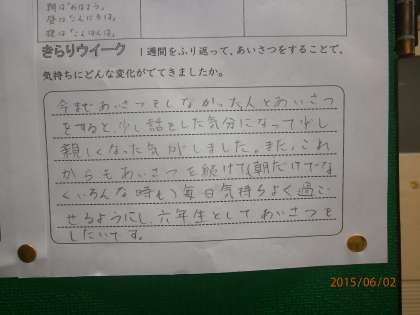 朝は「おはよう」
昼は「こんにちは」
夜は「こんばんは」
きらりウイーク 1週間をふり返って、あいさつをすることで、
気持ちにどんな変化がでてきましたか。
今まであいさつをしなかった人とあいさつ
をすると、少し話をした気分になって少し
親しくなった気がしました。また、これ
からもあいさつを続けて(朝だけでな
くいろんな時も)毎日気持ちよく過ご
せるようにし、六年生としてあいさつを
したいです。
2015/06/02